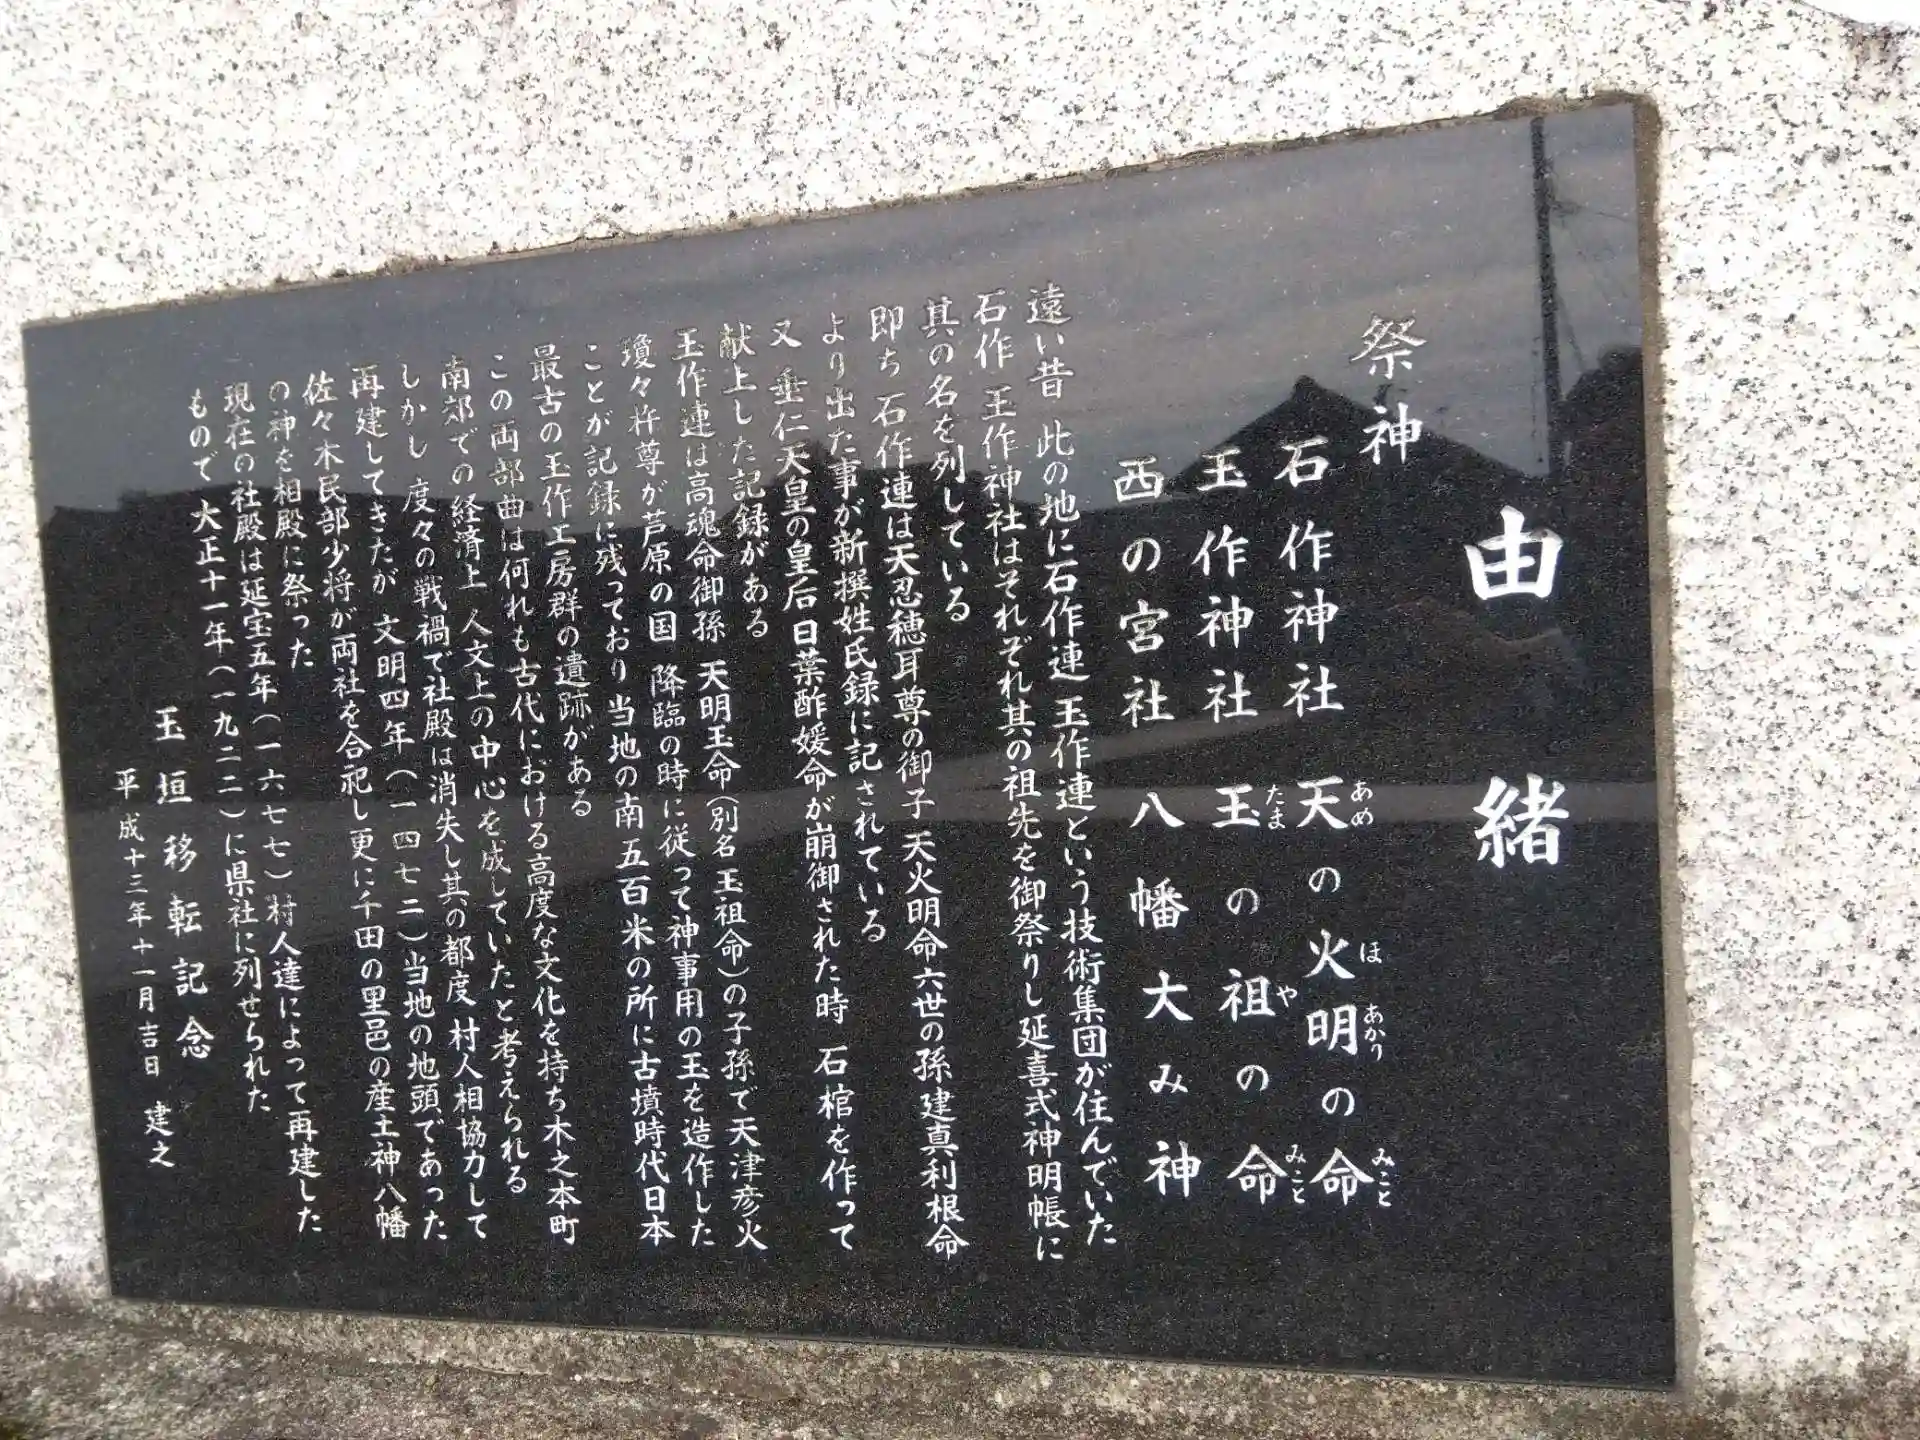 由緒
祭神
石作神社 天の火明の命
あめ ほ あかり みこと
玉作神社 玉の祖の命
たま や みこと
西の宮社 八幡大み神
遠い昔 此の地に石作連 玉作連という技術集団が住んでいた
石作 玉作神社はそれぞれ其の祖先を御祭りし延喜式神明帳に
其の名を列している
即ち 石作連は天忍穂耳尊の御子 天火明命六世の孫 建真利根命
より出た事が新撰姓氏録に記されている
又 垂仁天皇の皇后 日葉酢媛命が崩御された時 石棺を作って
献上した記録がある
玉作連は高魂命御孫 天明玉命(別名 玉祖命)の子孫で天津彦火
瓊々杵尊が芦原の国 降臨の時に従って神事用の玉を造作した
ことが記録に残っており当地の南 五百米の所に古墳時代日本
最古の玉作工房群の遺跡がある
この両部曲は何れも古代における高度な文化を持ち木之本町
南郊での経済上 人文上の中心を成していたと考えられる
しかし 度々の戦禍で社殿は消失し其の都度 村人相協力して
再建してきたが 文明四年(一四七二)当地の地頭であった
佐々木民部少将が両社を合祀し更に千田の里邑の産土神八幡
の神を相殿に祭った
現在の社殿は延宝五年(一六七七)村人達によって再建した
もので 大正十一年(一九二二)に県社に列せられた
玉垣移転記念
平成十三年十一月吉日 建之